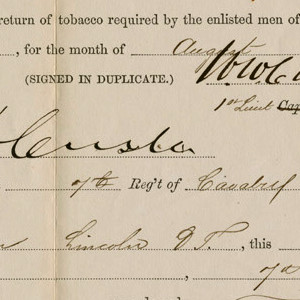 return of tobacco required by the enlisted men of
, for the month of August
(SIGNED IN DUPLICATE.)
1st Lieut Cap
Custer
7th Reg't of Cavalry
Lincoln D.T., this